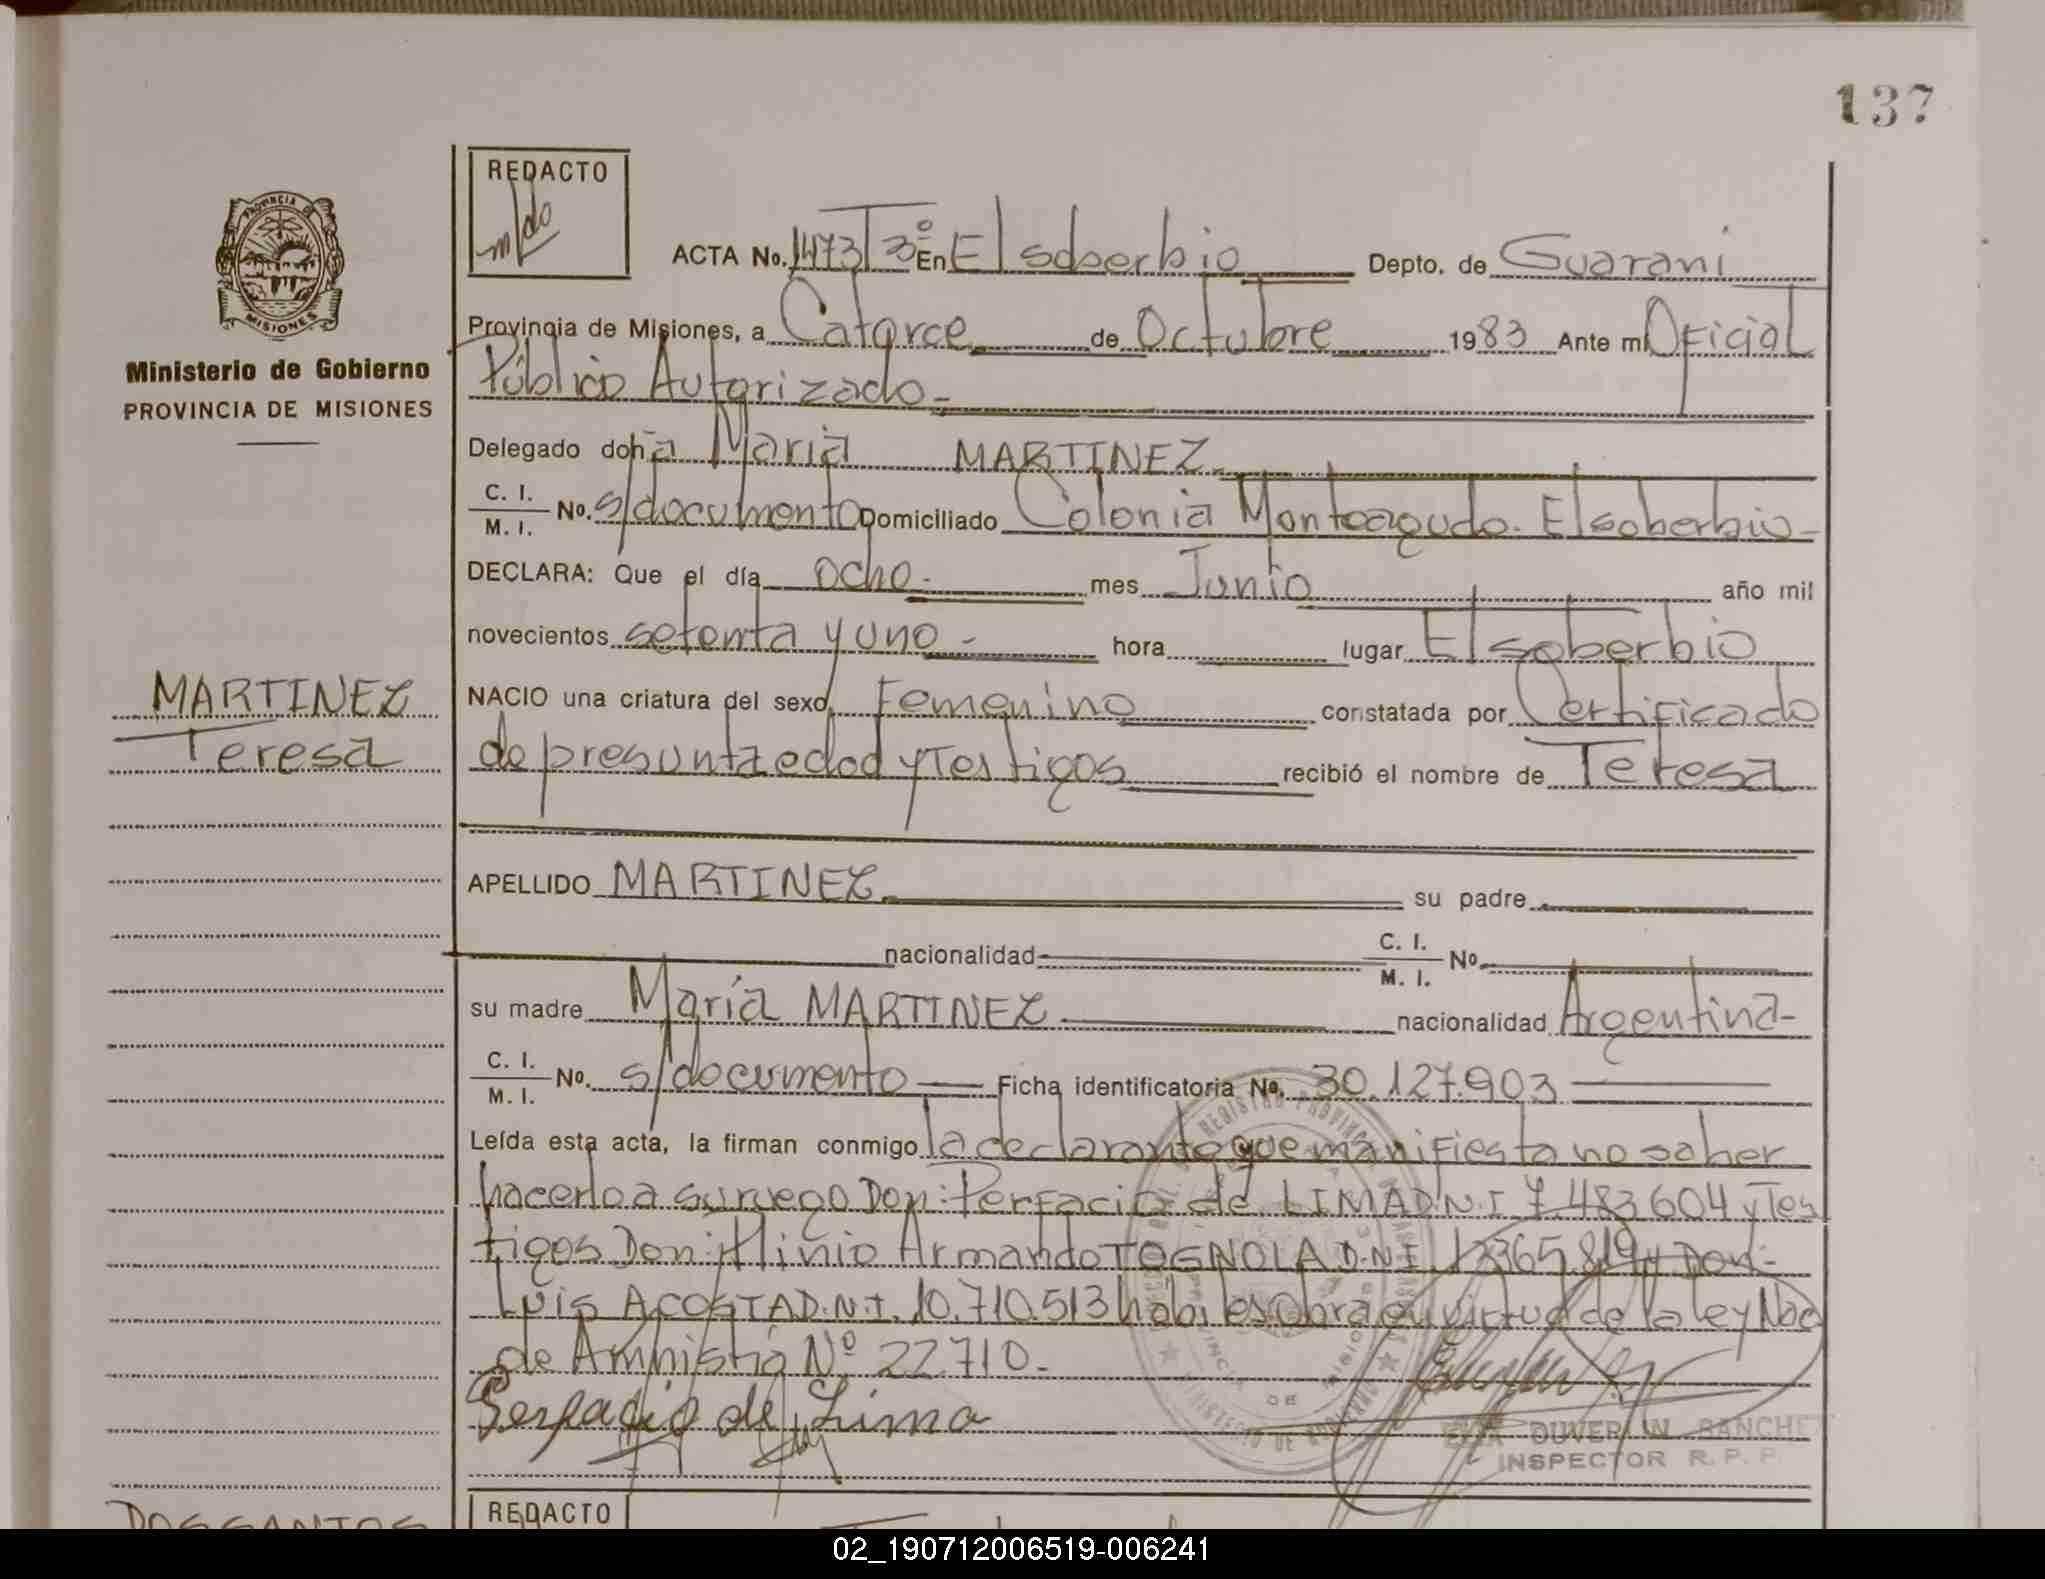 137
REDACTO
PROVINCIA DE
MISIONES
Ministerio de Gobierno
PROVINCIA DE MISIONES
ACTA No. 1473 T 3º En El Soberbio Depto. de Guarani
Provincia de Misiones, a Catorce de Octubre 1983 Ante mi Oficial
Público Autorizado.-
Delegado doña Maria MARTINEZ
C. I.
M. I. No. s/documento Domiciliado Colonia Monteagudo. El soberbio-
DECLARA: Que el día ocho.- mes Junio año mil
novecientos setenta y uno - hora lugar El soberbio
MARTINEZ
NACIO una criatura del sexo Femenino constatada por Certificado
Teresa
de presunta edad y Testigos recibió el nombre de Teresa
APELLIDO MARTINEZ su padre
nacionalidad C. I.
M. I. No.
su madre María MARTINEZ nacionalidad Argentina-
C. I.
M. I. No. s/documento Ficha identificatoria No. 30.127.903
Leída esta acta, la firman conmigo la declarante que manifiesta no saber
hacerlo a su ruego Don: Perfacio de LIMA D.N.I 7.483.604 y Tes
tigos Don: Armando TOGNOLA D.N.I 13365.819 y Don:
Luis ACOSTA D.N.I. 10.710.513 habiles obra en virtud de la ley Nac
de Amnistia Nº 22.710.-
Perfacio de Lima
DUVERLIN SANCHEZ
INSPECTOR R. P. P.
DOSSANTOS
REDACTO
02_190712006519-006241